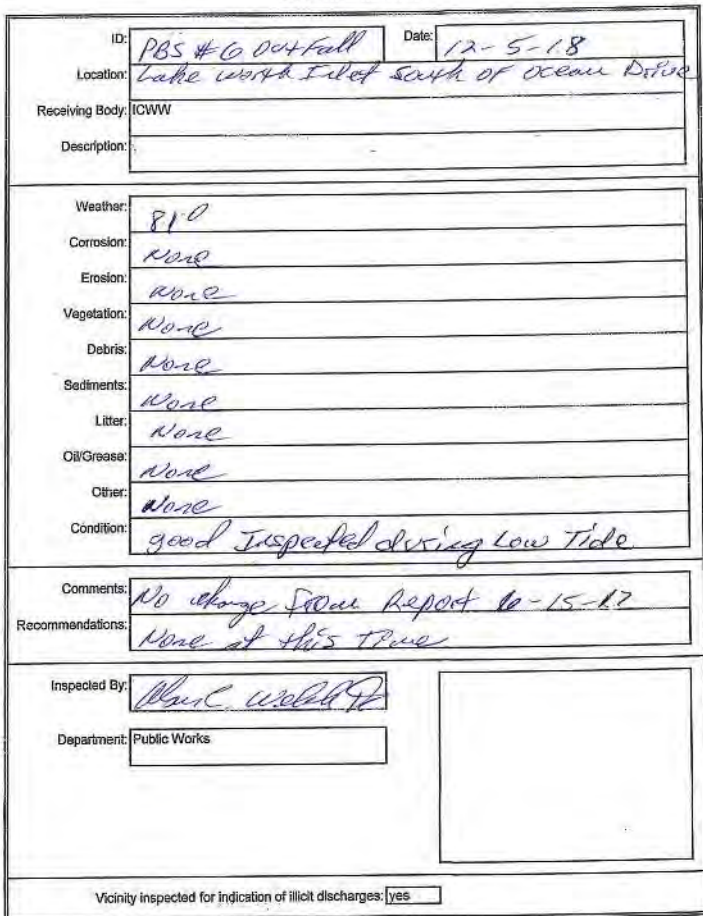 ID: PBS #6 OutFall Date: 12-5-18
Location: Lake Worth Inlet South of Ocean Drive
Receiving Body: ICWW
Description:
Weather: 81°
Corrosion: None
Erosion: None
Vegetation: None
Debris: None
Sediments: None
Litter: None
Oil/Grease: None
Other: None
Condition: good Inspected during Low Tide
Comments: No change From Report 6-15-17
Recommendations: None at this Time
Inspected By:
Department: Public Works
Vicinity inspected for indication of illicit discharges: yes